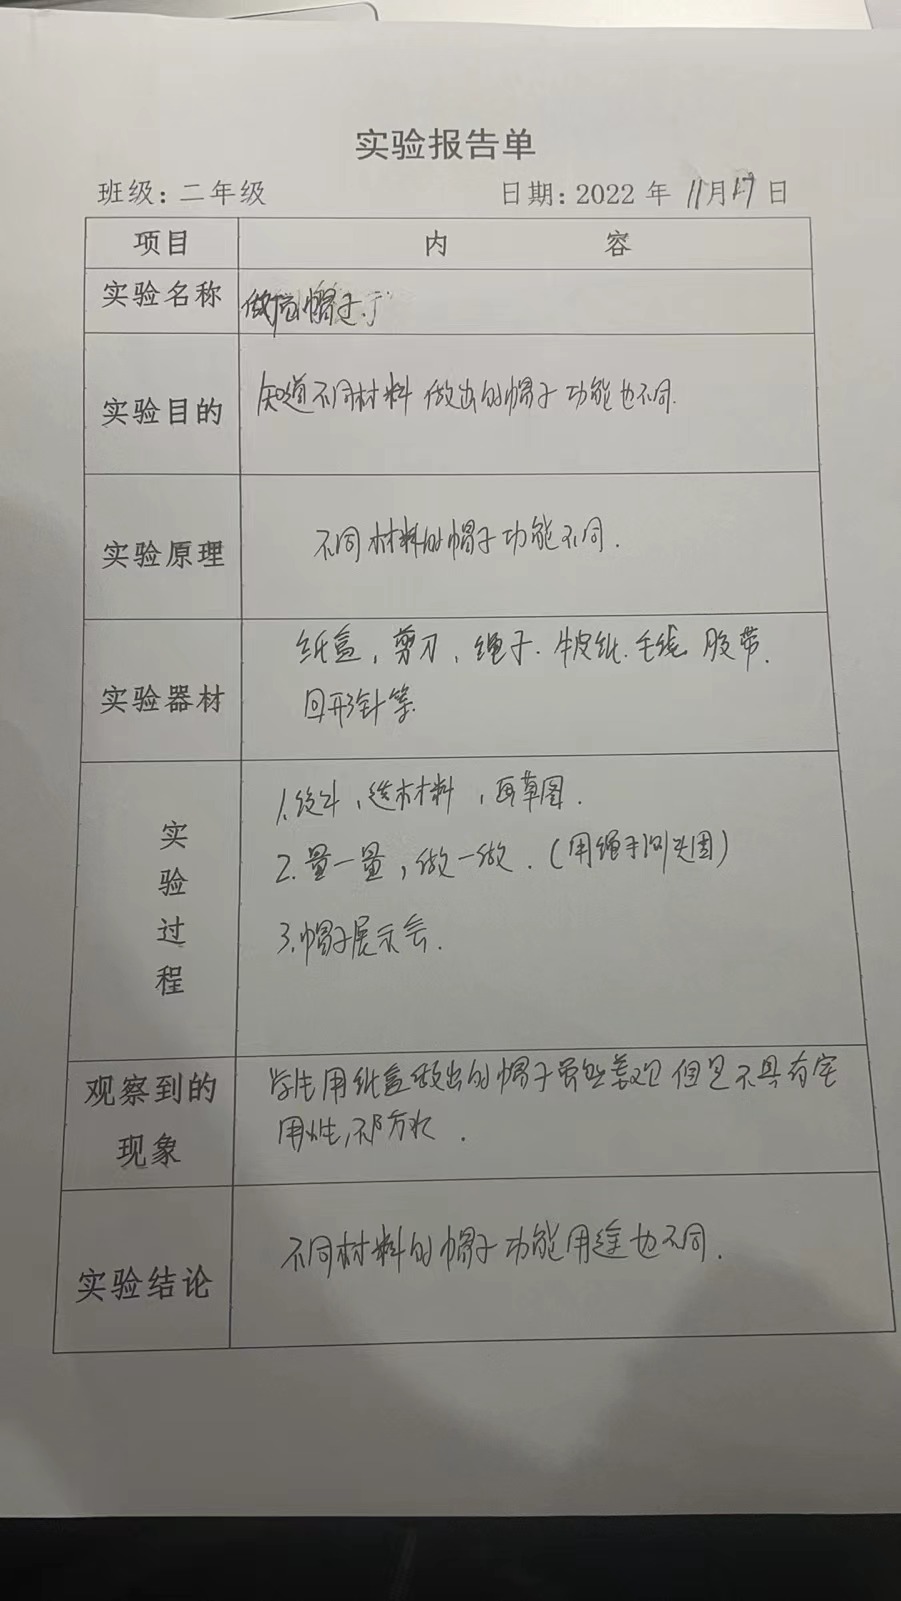 实验报告单
班级：二年级 日期：2022 年 11月17日
项目 内 容
实验名称 做顶帽子
实验目的 知道不同材料做出的帽子功能也不同.
实验原理 不同材料的帽子功能不同.
实验器材 纸盒，剪刀，绳子. 牛皮纸. 毛线 胶带.
回形针等.
实验过程 1.设计，选材料，画草图.
2.量一量，做一做.（用绳子测头围）
3.帽子展示会.
观察到的 学生用纸盒做出的帽子虽然美观但是不具有实
现象 用性，不防水.
实验结论 不同材料的帽子功能用途也不同.